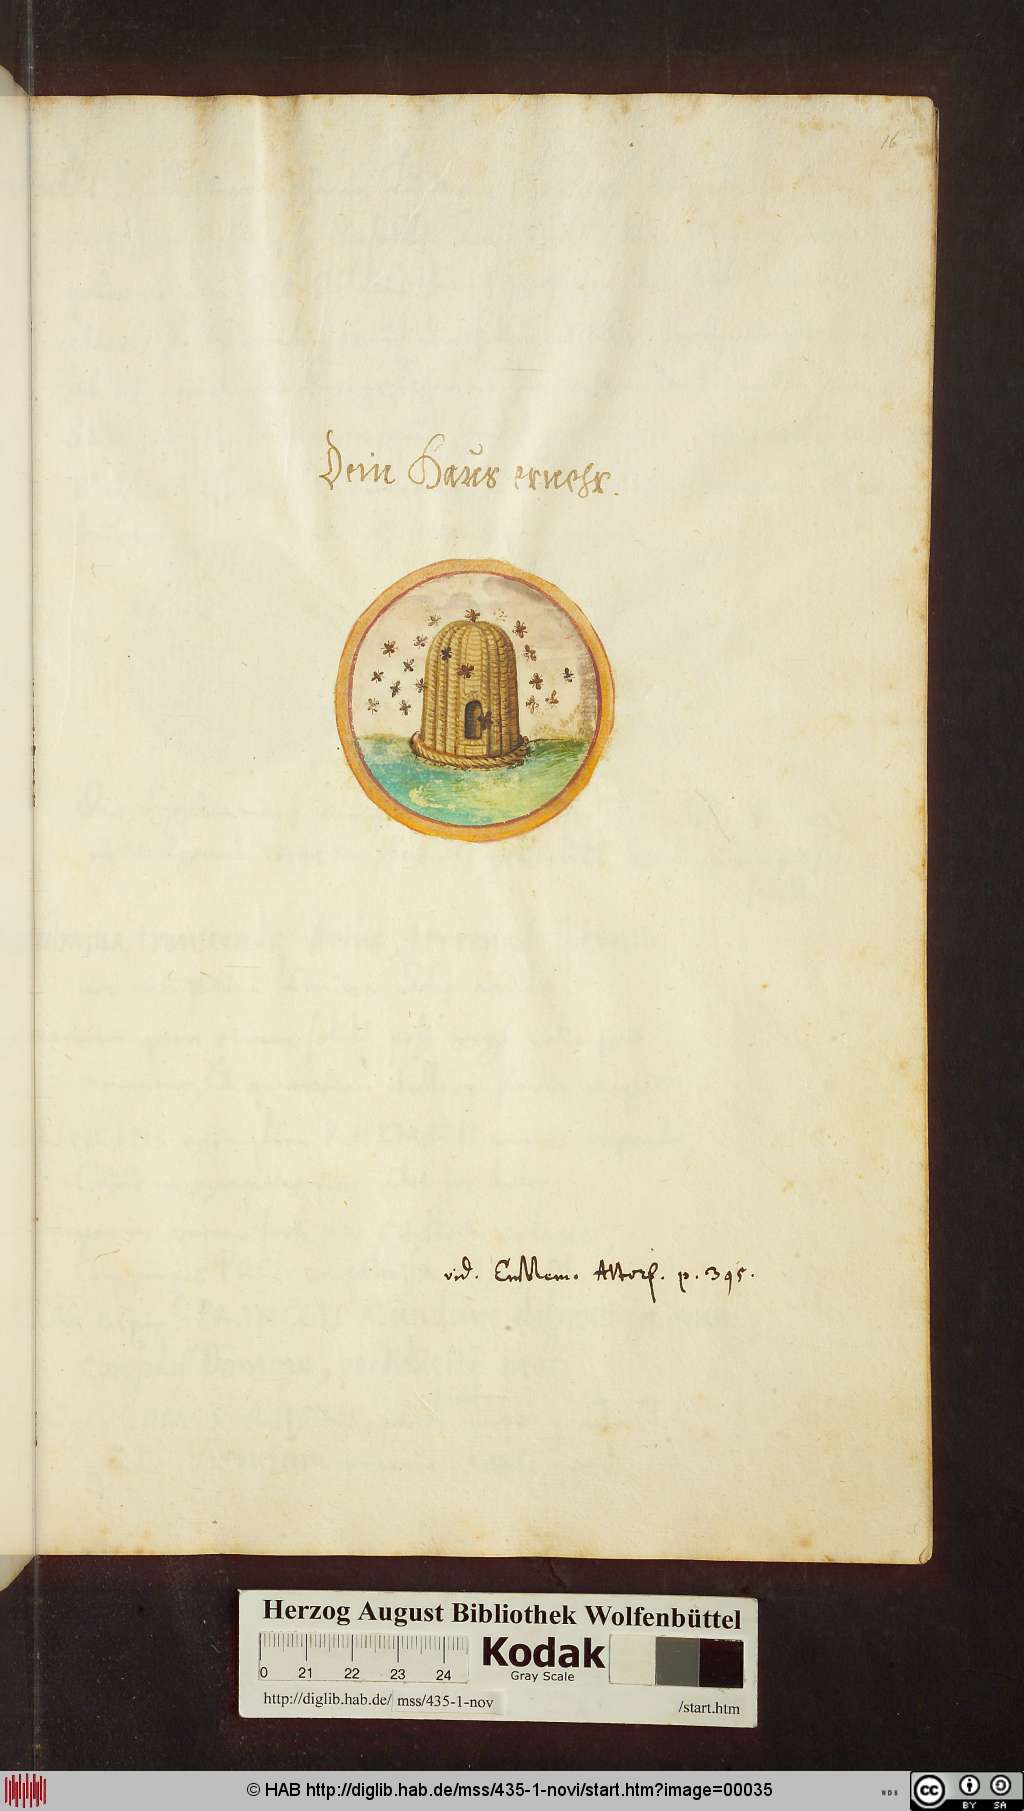 16
Dein Haus ernehr.
vid. Emblem. Altorf. p. 395.
Herzog August Bibliothek Wolfenbüttel
Kodak
Gray Scale
0 21 22 23 24
http://diglib.hab.de/ mss/435-1-nov
/start.htm
© HAB http://diglib.hab.de/mss/435-1-novi/start.htm?image=00035
WDB
cc
BY SA